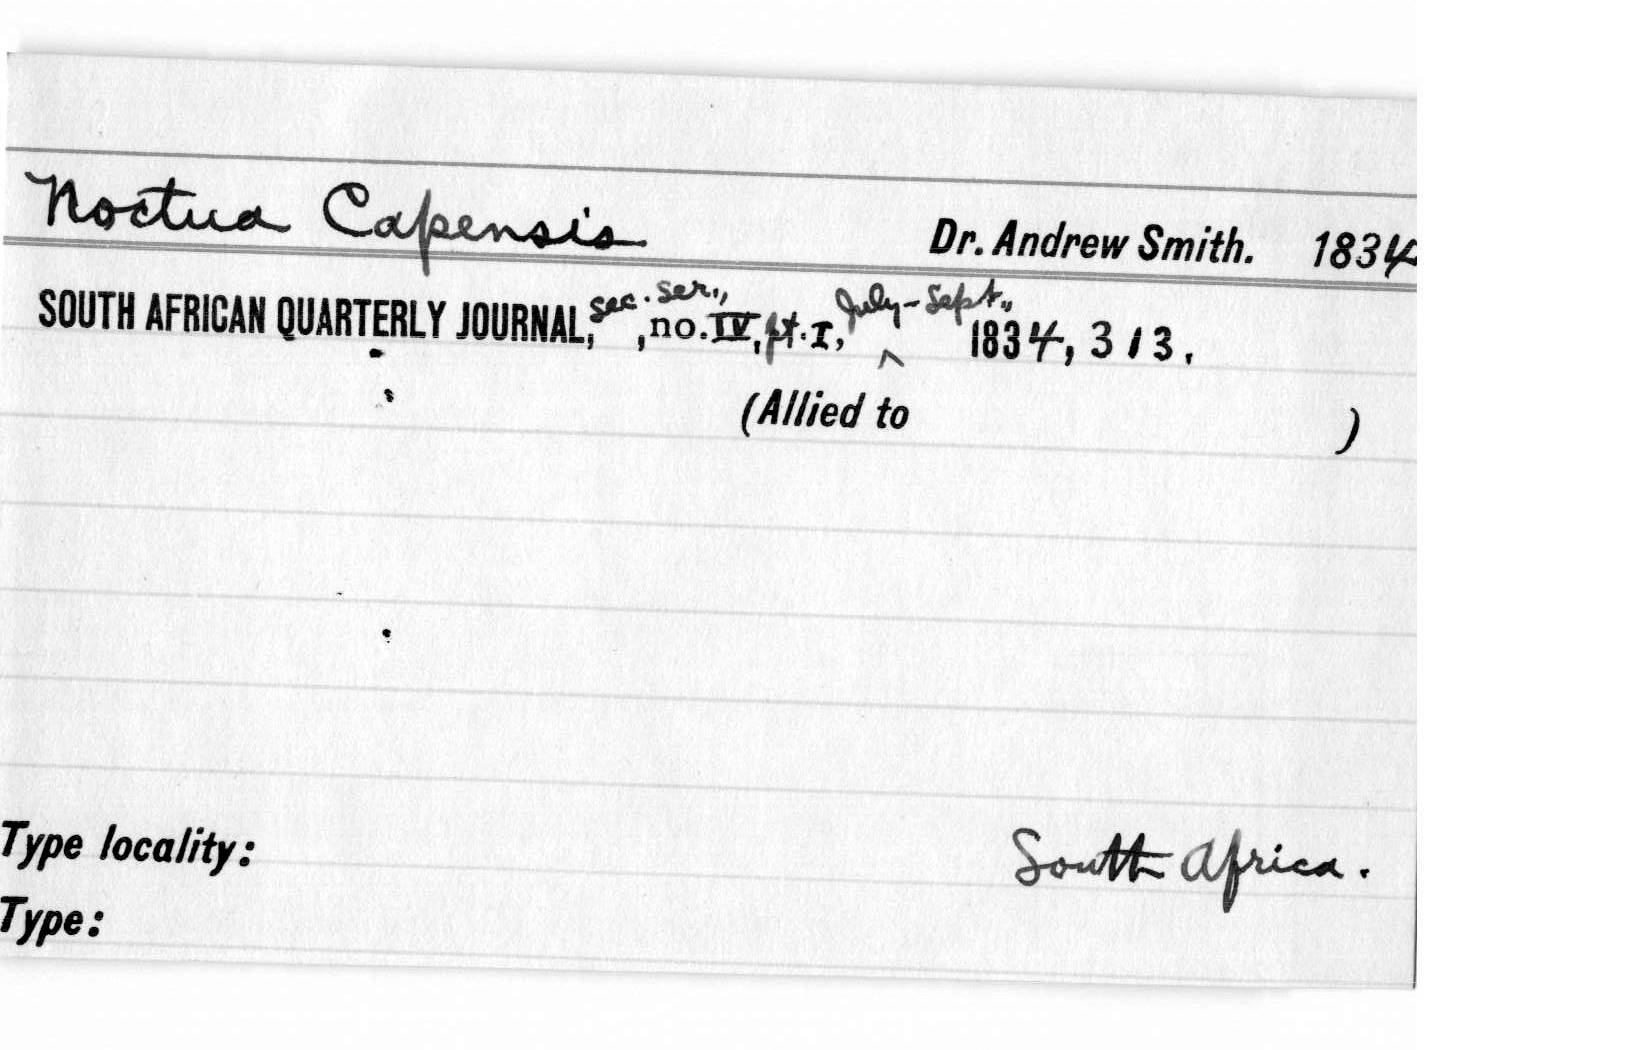 Noctua Capensis Dr. Andrew Smith. 1834
SOUTH AFRICAN QUARTERLY JOURNAL, sec. ser., , no. IV, pt. I, July-Sept., 1834, 313.
(Allied to )
Type locality: South Africa.
Type: